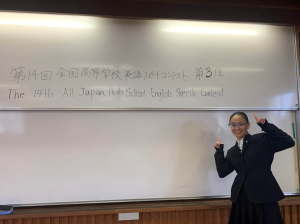 第14回 全国高等学校 英語スピーチコンテスト 第3位
The 14th All Japan High School English Speech Contest